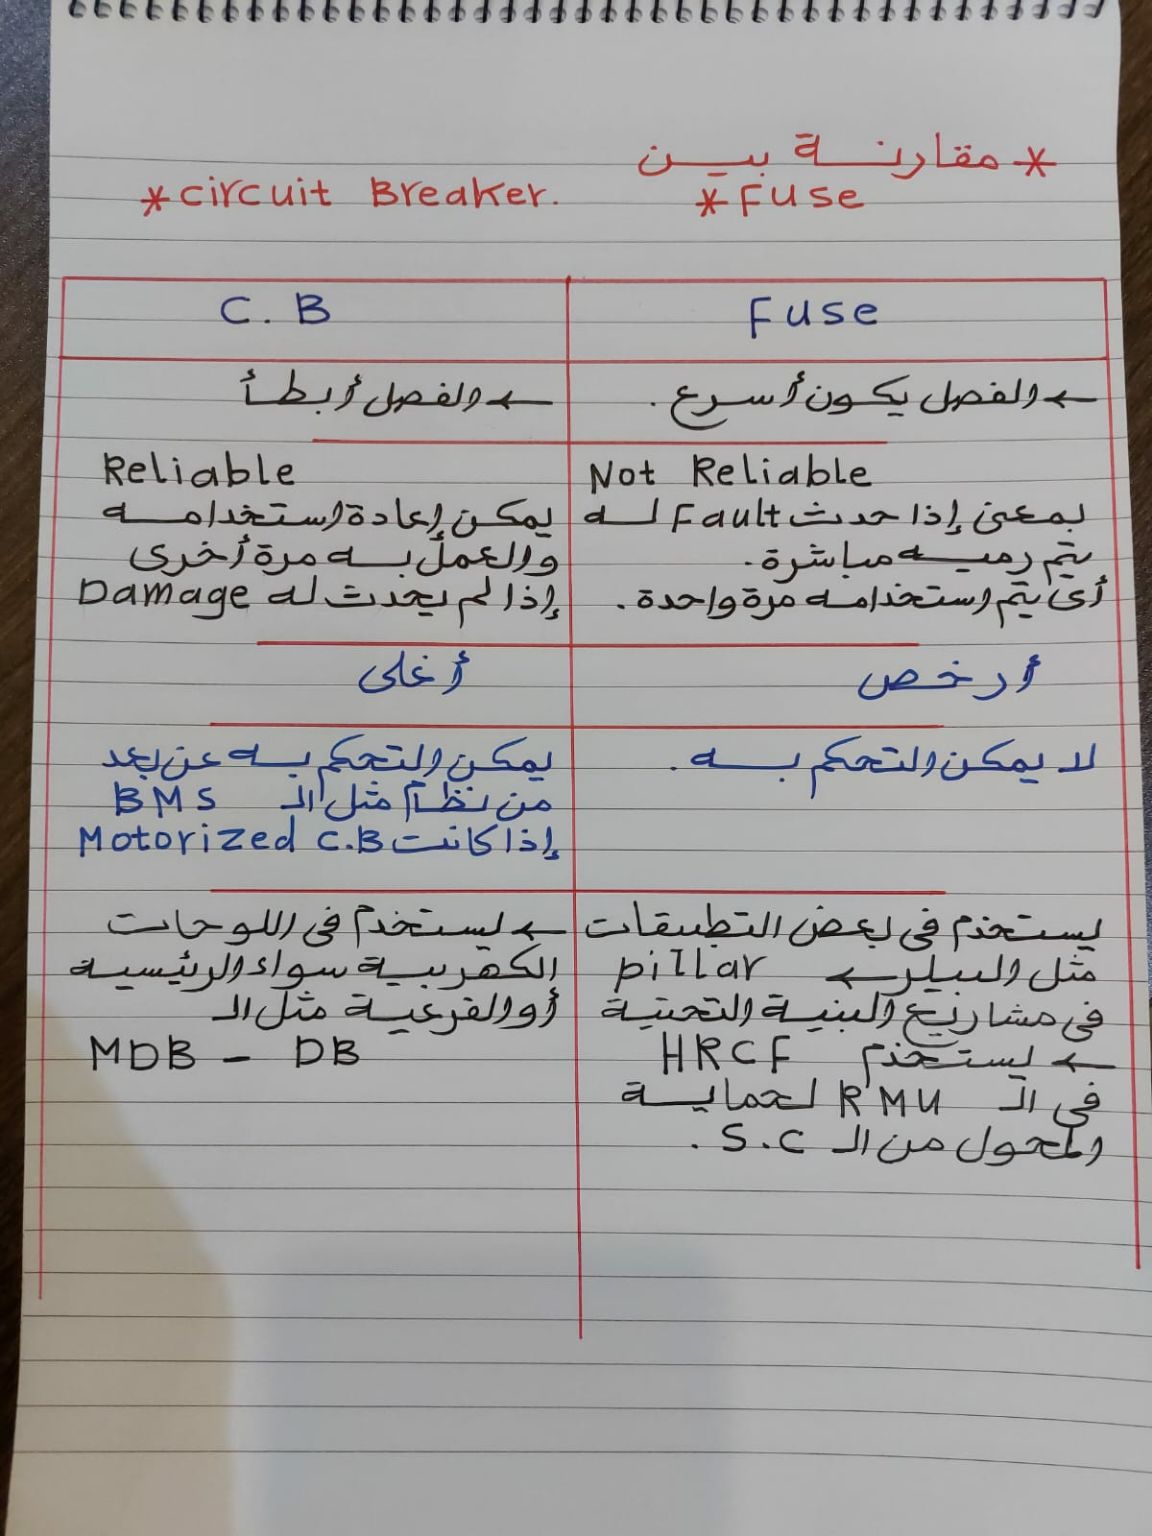 * مقارنة بين
* Fuse
* circuit Breaker.
Fuse
C.B
← الفصل يكون أسرع.
← الفصل أبطأ
Not Reliable
بمعنى إذا حدث Fault له
يتم رميه مباشرة.
أى يتم استخدامه مرة واحدة.
Reliable
يمكن إعادة استخدامه
والعمل به مرة أخرى
إذا لم يحدث له Damage
أرخص
أغلى
لا يمكن التحكم به.
يمكن التحكم به عن بعد
من نظام مثل الـ BMS
إذا كانت Motorized C.B
يستخدم فى بعض التطبيقات
مثل البيلر ← pillar
فى مشاريع البنية التحتية
← يستخدم HRCF
فى الـ RMU لحماية
المحول من الـ S.C.
← يستخدم فى اللوحات
الكهربية سواء الرئيسية
أو الفرعية مثل الـ
MDB - DB